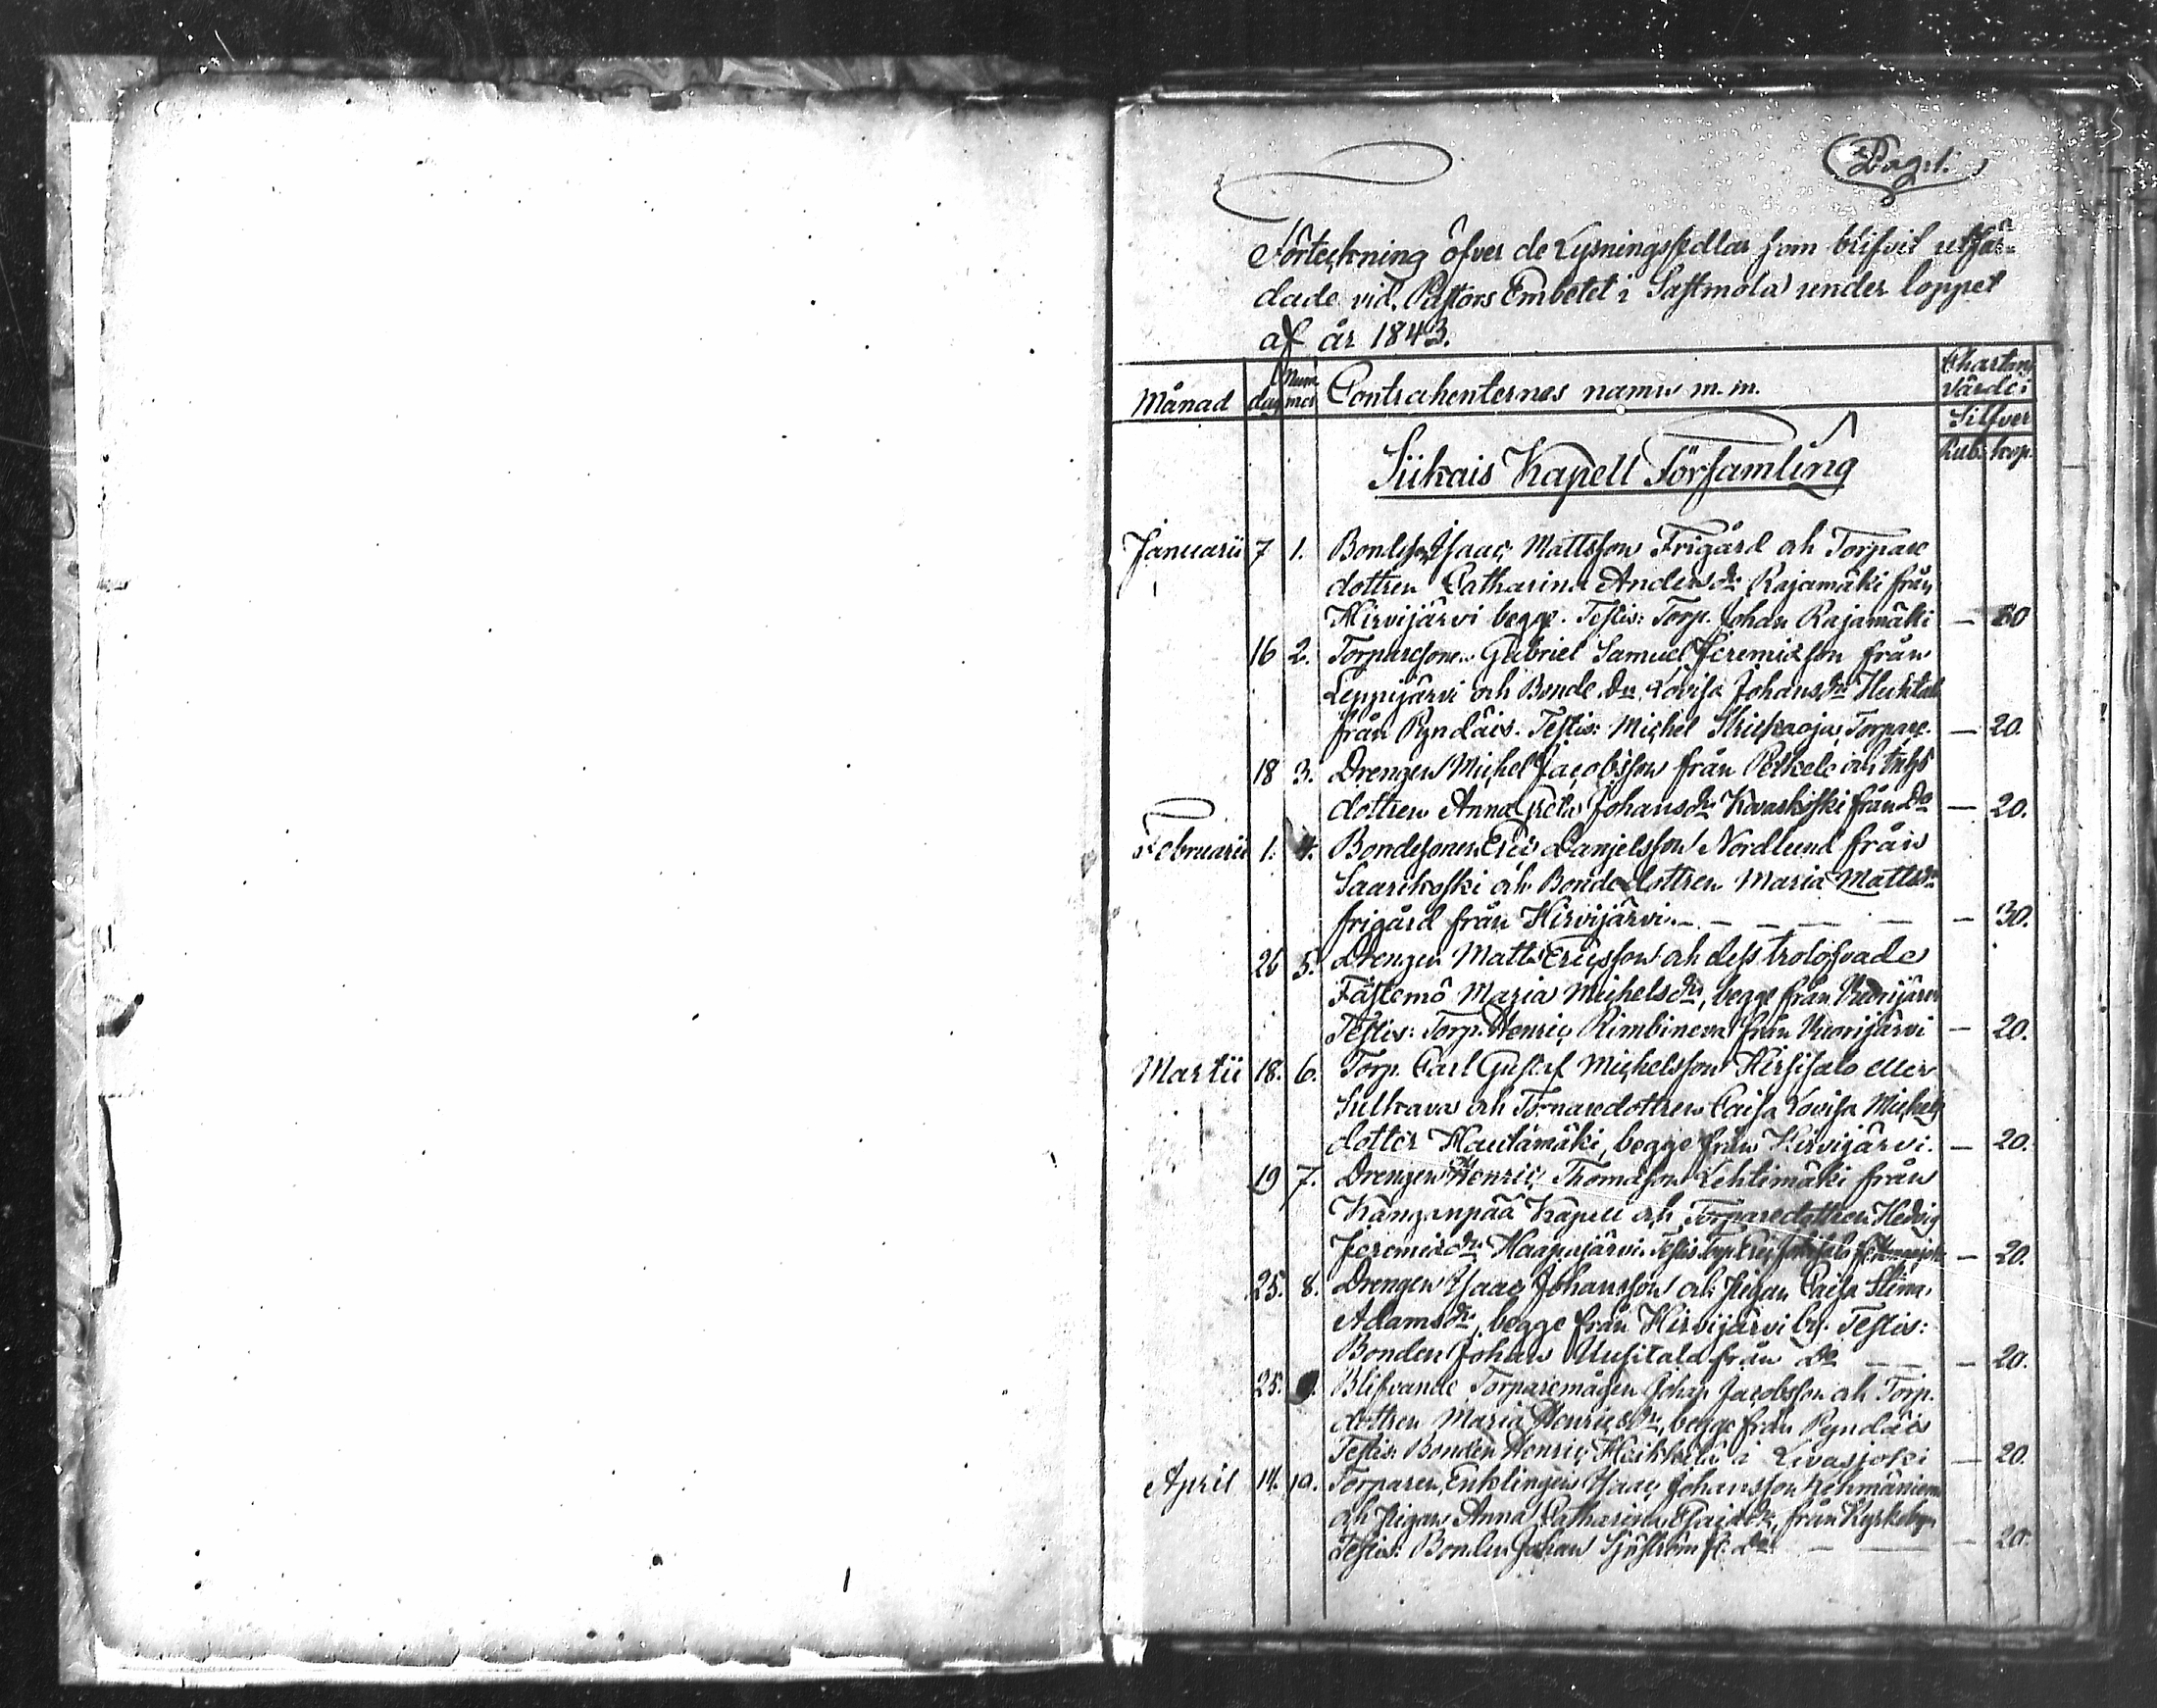 Pag: 1.
Förteckning öfver de Lysningssedlar som blifvit utfär-
dade vid Pastors Embetet i Sastmola under loppet
af år 1843.
Månad dag Num mer Contrahenternes namn m. m. Chartæ värde i
Silfver
Rub. kop.
Siikais Kapell Församling
Januarii 7 1. Bondeson Isaac Mattsson Frigård och Torpare
dottren Catharina Andersdr Rajamäki från
Hirvijärvi begge. Testis: Torp. Johan Rajamäki —
16 2. Torparesonen Gabriel Samuel Jeremiasson från
Leppijärvi och Bonde Dr Lovisa Johansdr
från Pyndäis. Testis: Michel Torpare. — 20.
18 3. Drengen Michel Jacobsson från och Inhys
dottren Anna Greta Johansdr från Do — 20.
Februarii 1. 4. Bondesonen Eric Danjelsson Nordlund från
Saarikoski och Bondedottren Maria Mattsdr
frigård från Hirvijärvi. — — — — — — 30.
26 5. Drengen Matts Ericsson och dess trolofvade
Fästemö Maria Michelsdr, begge från
Testis: Torp. Henric från — 20.
Martii 18. 6. Torp. Carl Gustaf Michelsson Hirsisalo eller
Sulkava och Torparedottren Caisa Lovisa Michels
dotter Hautamäki, begge från Hirvijärvi. — 20.
19 7. Drengen Henric Thomasson Lehtimäki från
Kanganpää Kapell och Torparedottren Hedvig
Jeremiædr Haapajärvi. Testis: Torp. Eric — 20.
25. 8. Drengen Isaac Johansson och pigan Caisa Stina
Adamsdr, begge från Hirvijärvi by. Testis:
Bonden Johan Uusitalo från Do — — — 20.
25. 9. Blifvande Torparemågen Johan Jacobsson och Torp.
dottren Maria Henricsdr, begge från Pyndäis
Testis: Bonden Henric Heikkilä i Leväsjoki — 20.
April 14. 10. Torparen, Enklingen Isaac Johansson
och pigan Anna Catharina Esaiædr, från Kyrkobyn
Testis: Bonden Johan Sjöström fr. Do — — — 20.